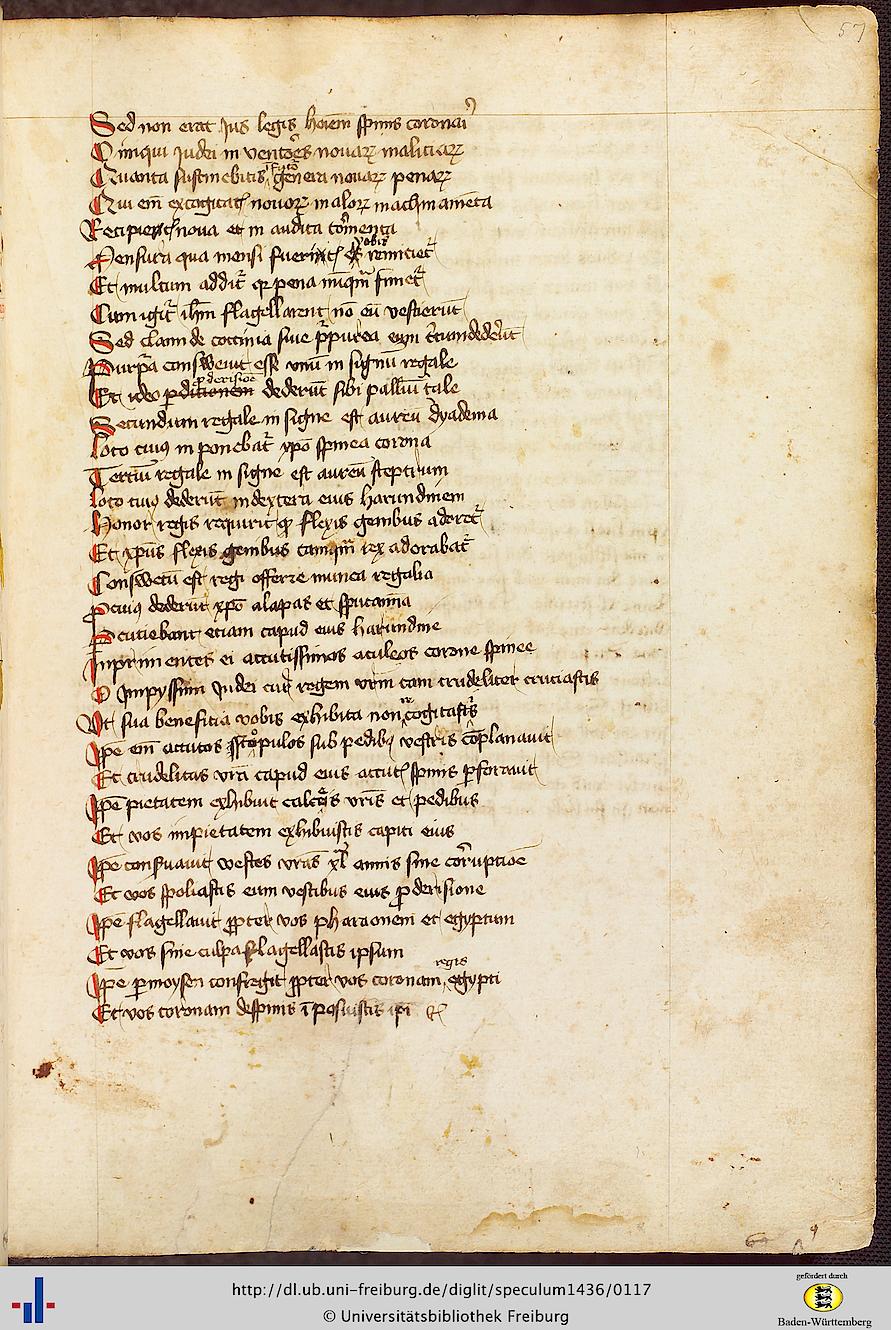 57
Sed non erat Jus legis hoiem spinis coronari
O iniqui Judei in ventores novarꝝ maliciarꝝ
Quanta sustinebitis genera novarꝝ penarꝝ
Qui em̄ excogitastis novorꝝ malorꝝ machinamēta
Recipietis nova et in audita tormenta
Mensura qua mensi fueritis vobis remitietr̄
Et multum additr̄ qꝫ pena nūqm̄ finietr̄
Cum igitr̄ ihm̄ flagellarent nō eū vestierūt
Sed clamide coccinia sive purpurea eum circumdederūt
Purpura conswevit esse unū in signū regale
Et ideo p derisiōe dederūt sibi palliū tale
Secundum regale in signe est aureū dyadema
Loco cuiꝰ in ponebatr̄ xpō spinea corona
Tertiū regale in signe est aureū sceptrum
Loco cuiꝰ dederūt in dextera eius harundinem
Honor regis requirit qꝫ flexis genibus adoretr̄
Et xpūs flexis genibus tamqm̄ rex adorabatr̄
Conswetū est regi offerre munera regalia
P cuiꝰ dederūt xpō alapas et sputamīa
Percutiebant etiam capud eius harundine
Inprimentes ei accutissimos aculeos corone spinee
O Impyssimi Judei cur regem vr̄m tam crudeliter cruciastis
Ut sua beneficia vobis exhibita non cogitastis
Ipse em̄ accutos scopulos sub pedibꝰ vestris cōplanavit
Et crudelitas vrā capud eius accutis spinis pforavit
Ipse pietatem exhibuit calceis vrīs et pedibus
Et vos impietatem exhibuistis capiti eius
Ipse conservavit vestes vrās xl annis sine corruptiōe
Et vos spoliastis eum vestibus eius p derisione
Ipse flagellavit ppter vos pharaonem et egyptum
Et vos sine culpa flagellastis ipsum
Ipse p moysen confregit ppter vos coronam regis egypti
Et vos coronam de spinis ī posuistis ipī
http://dl.ub.uni-freiburg.de/diglit/speculum1436/0117
© Universitätsbibliothek Freiburg
gefördert durch
Baden-Württemberg